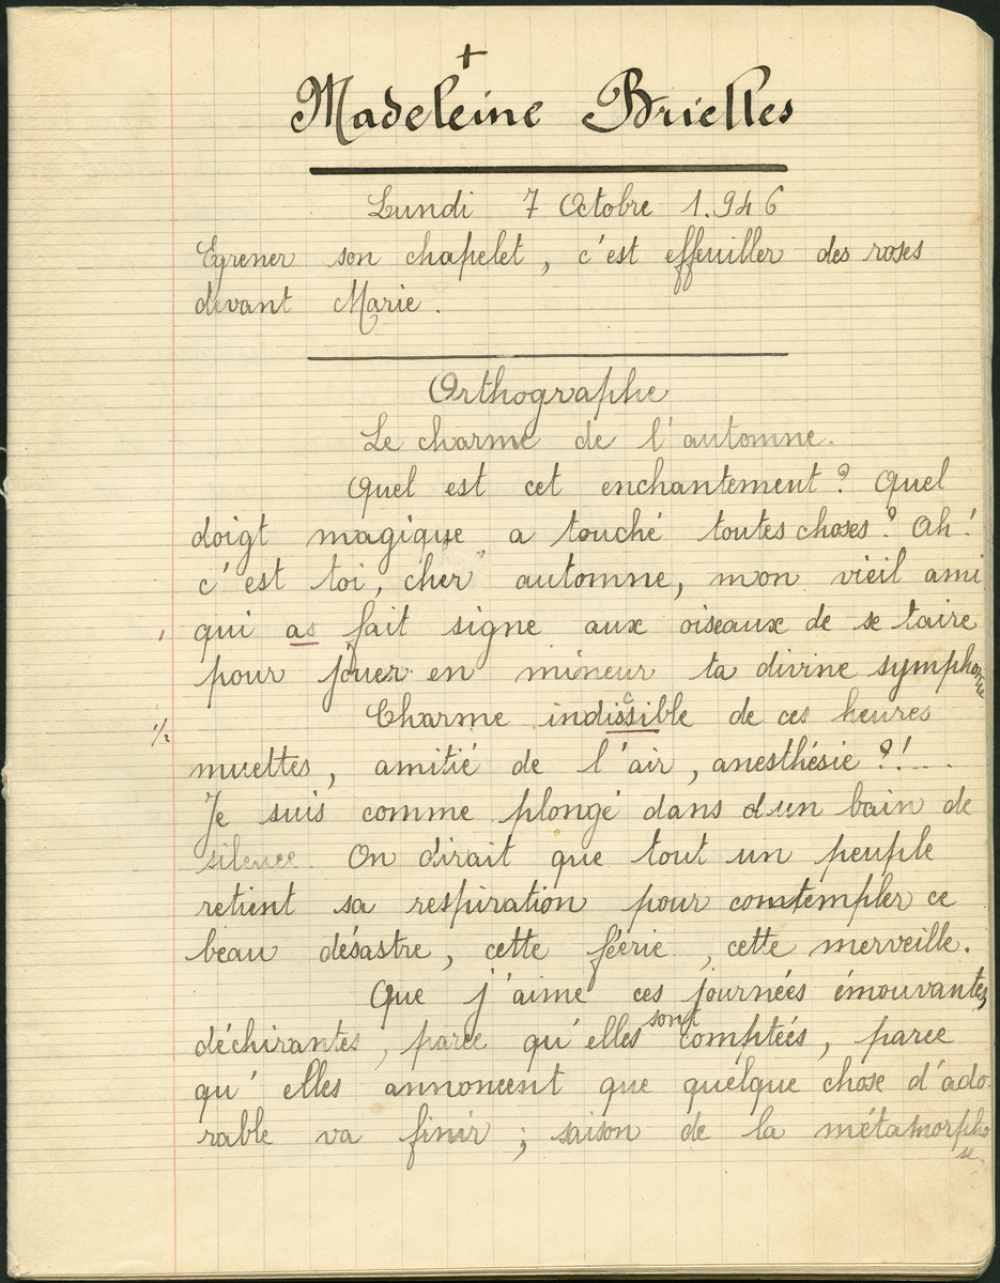 +
Madeleine Brielles
Lundi 7 Octobre 1.946
Egrener son chapelet, c'est effeuiller des roses
devant Marie.
Orthographe
Le charme de l'automne.
Quel est cet enchantement ? Quel
doigt magique a touché toutes choses ? Ah !
c'est toi, cher automne, mon vieil ami
1 qui as fait signe aux oiseaux de se taire
pour jouer en mineur ta divine symphonie
1/2 Charme indissible de ces heures
muettes, amitié de l'air, anesthésie ?!...
Je suis comme plongé dans d'un bain de
silence. On dirait que tout un peuple
retient sa respiration pour comtempler ce
beau désastre, cette féerie, cette merveille.
Que j'aime ces journées émouvantes,
déchirantes, parce qu'elles sont comptées, parce
qu'elles annoncent que quelque chose d'ado-
rable va finir ; saison de la métamorpho
se,